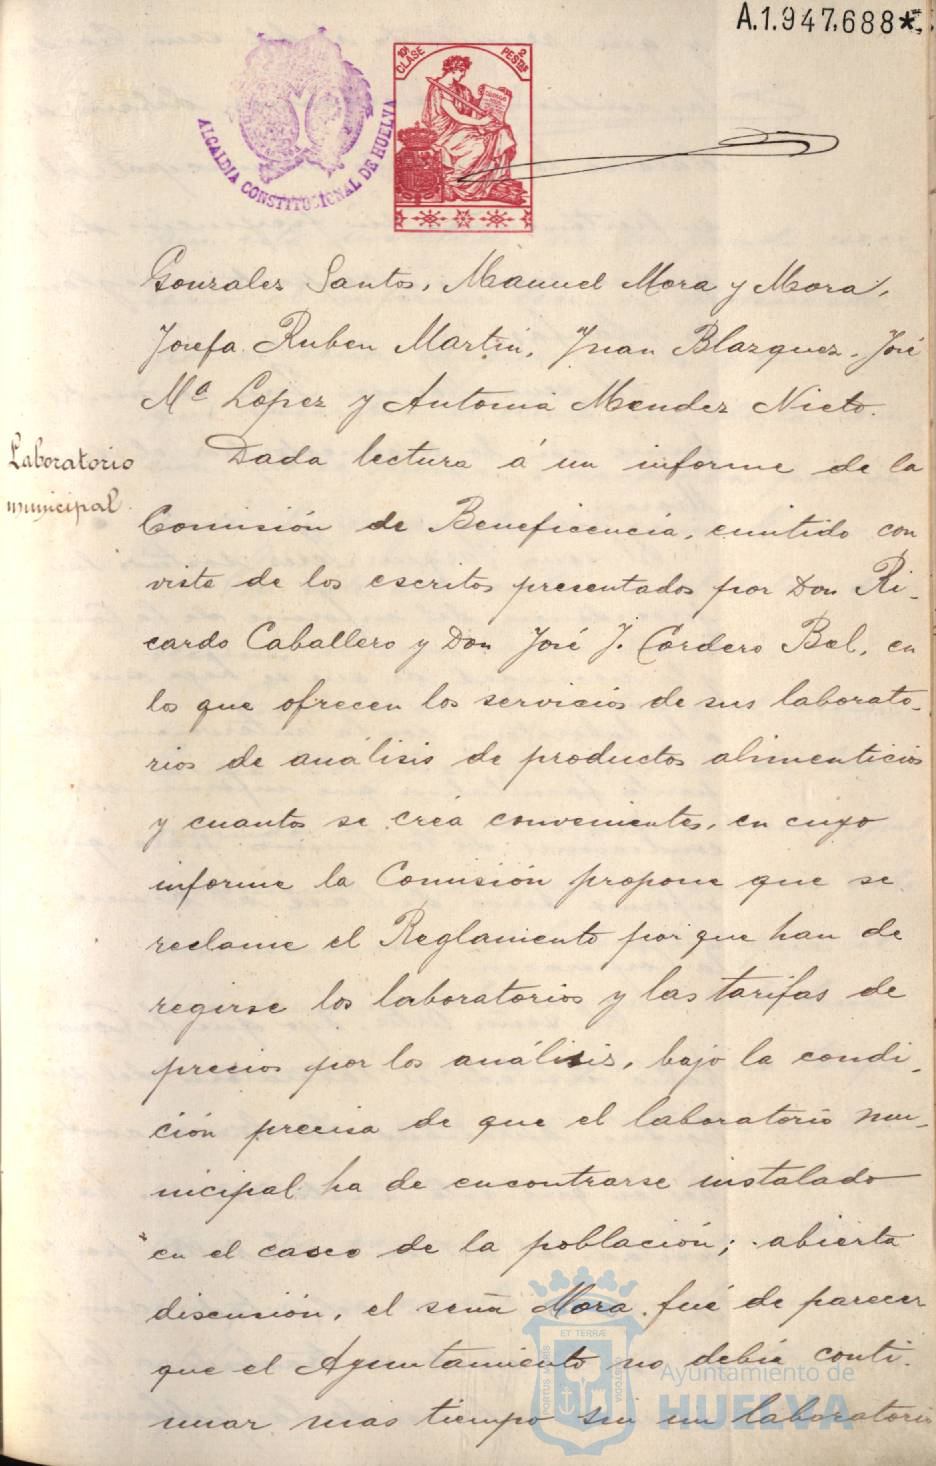 A.1.947,688*
10ª CLASE
2 PESTAS
ALCALDIA CONSTITUCIONAL DE HUELVA
Gonzales Santos, Manuel Mora y Mora,
Josefa Ruben Martin, Juan Blazquez, José
Mª Lopez y Antonia Mendez Nieto.
Laboratorio
municipal
Dada lectura á un informe de la
Comisión de Beneficencia, emitido con
vista de los escritos presentados por Don Ri-
cardo Caballero y Don José J. Cordero Bel, en
los que ofrecen los servicios de sus laborato-
rios de análisis de productos alimenticios
y cuantos se créa convenientes, en cuyo
informe la Comisión propone que se
reclame el Reglamento por que han de
regirse los laboratorios y las tarifas de
precios por los análisis, bajo la condi-
ción precisa de que el laboratorio mu-
nicipal ha de encontrarse instalado
en el casco de la población; abierta
discusión, el señor Mora fué de parecer
que el Ayuntamiento no debia conti-
nuar mas tiempo sin un laboratorio
ET TERRÆ
PORTUS MARIS
CUSTODIA
Ayuntamiento de
HUELVA